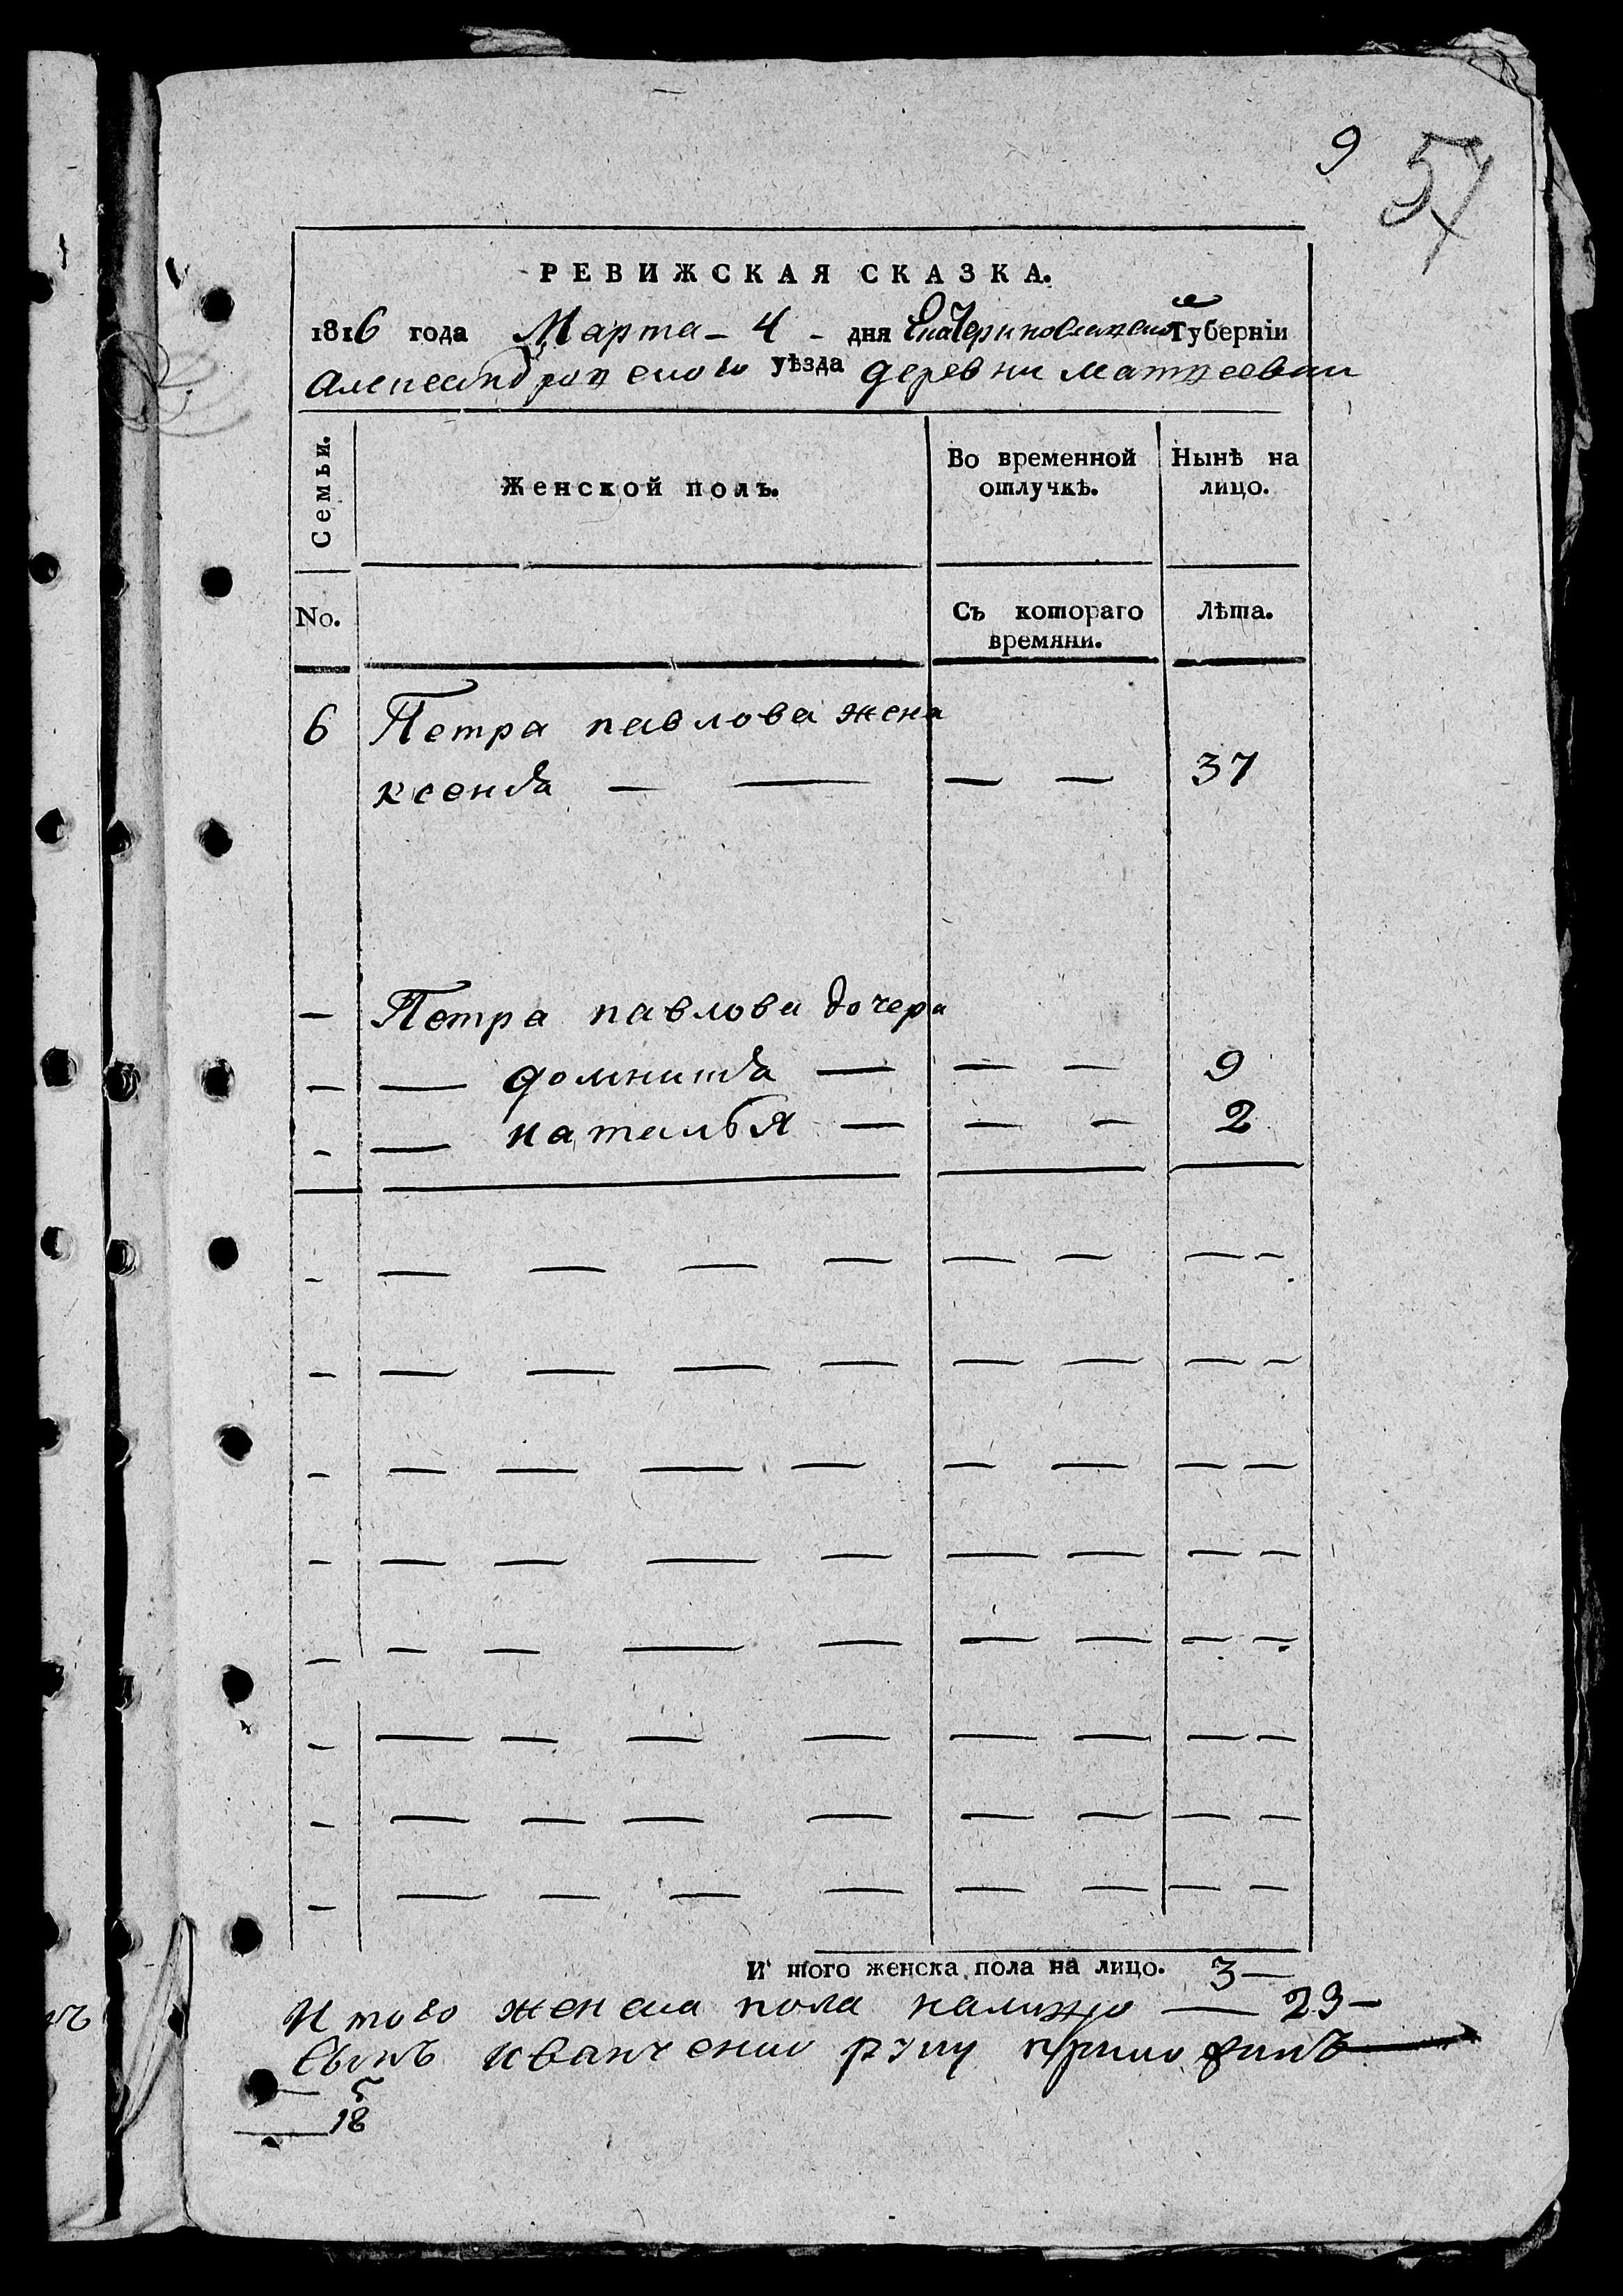 9 57
РЕВИЖСКАЯ СКАЗКА.
1816 года Марта - 4 - дня Екатеринославской Губерніи
Александровского уѣзда деревни Матвеевки
Семьи.
Женской полъ.
Во временной отлучкѣ.
Нынѣ на лицо.
No.
Съ котораго времяни.
Лѣта.
6 Петра павлова жена
ксенъа — — — — 37
— Петра павлова дочери
— — домникъа — — — 9
— — наталья — — — 2
И того женска пола на лицо. 3 —
Итого женска пола налицо — 29 —
сынъ Иванченко руку приложилъ
5
18